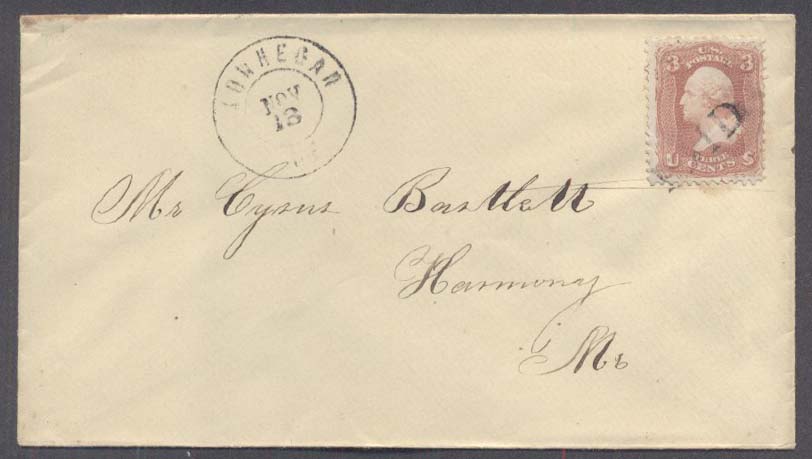 KOWHEGAN
NOV
18
U.S.
POSTAGE
3 3
THREE
U CENTS S
PAID
Mr Cyrus Bartlett
Harmony
Me